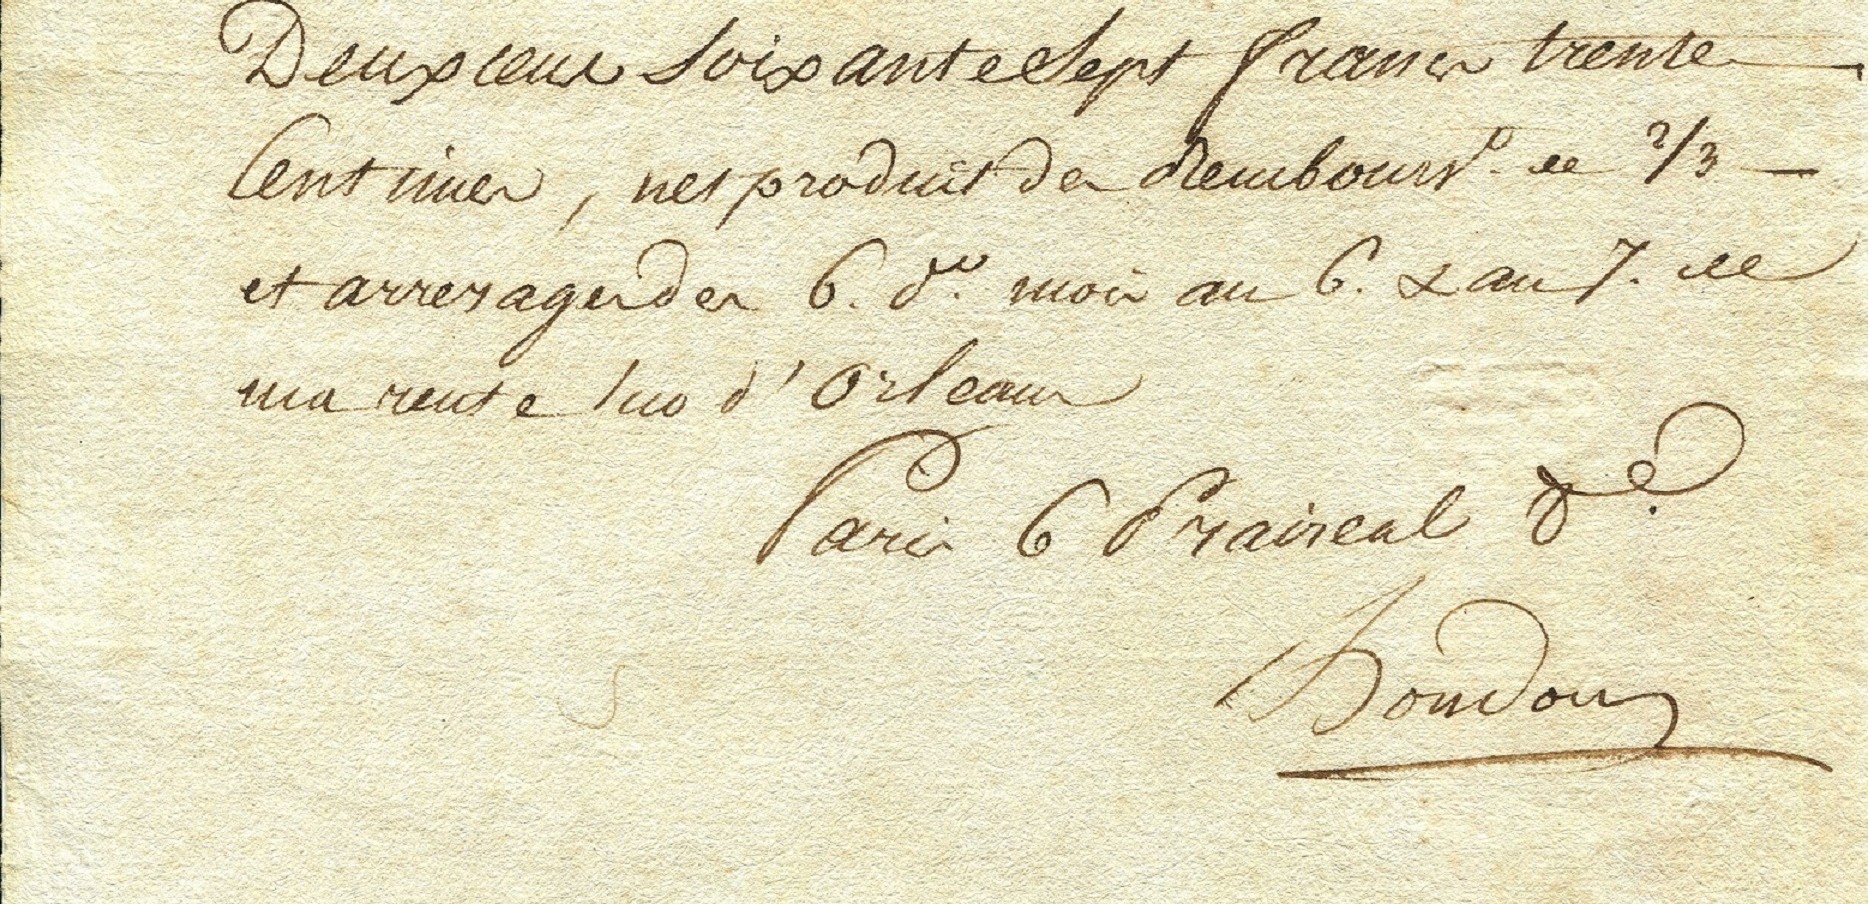 Deux cens soixante Sept francs trente
Centimes, net produit des Rembours.t de 2/3
et arrerages des 6. d.ers mois an 6. & an 7. de
ma rente sur d'Orleans
Paris 6 Prairéal 8e.
houdon